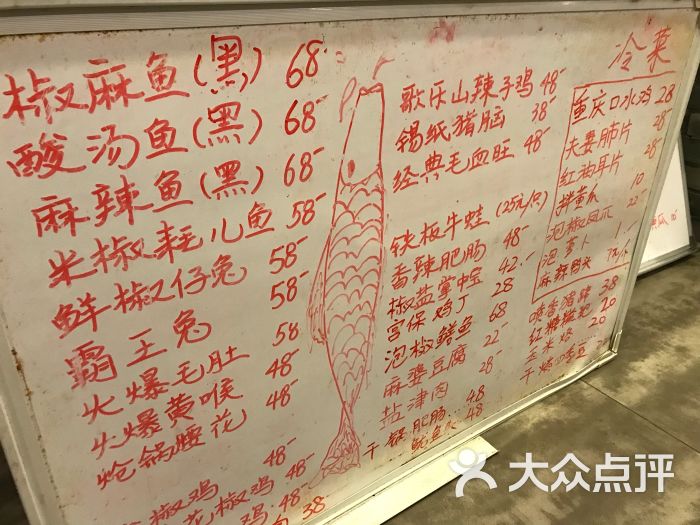 椒麻鱼(黑) 68-
酸汤鱼(黑) 68-
麻辣鱼(黑) 68-
米椒耗儿鱼 58-
鲜椒仔兔 58-
霸王兔 58-
火爆毛肚 58
火爆黄喉 48-
炝锅腰花 48-
椒鸡 48-
花椒鸡 48-
鸡 48-
38
歌乐山辣子鸡 48-
锡纸猪脑 38-
经典毛血旺 48-
铁板牛蛙 (25元/只)
香辣肥肠 48-
椒盐掌中宝 42-
宫保鸡丁 28
泡椒鳝鱼 68
麻婆豆腐 22-
盐津肉 28-
干锅肥肠 48
鱿鱼 48
冷菜
重庆口水鸡 28
夫妻肺片 28-
红油耳片 28-
拌黄瓜 10
泡椒凤爪 22-
泡萝卜
麻辣鸭头
38
红糖糍粑 20
玉米烙 20
大众点评